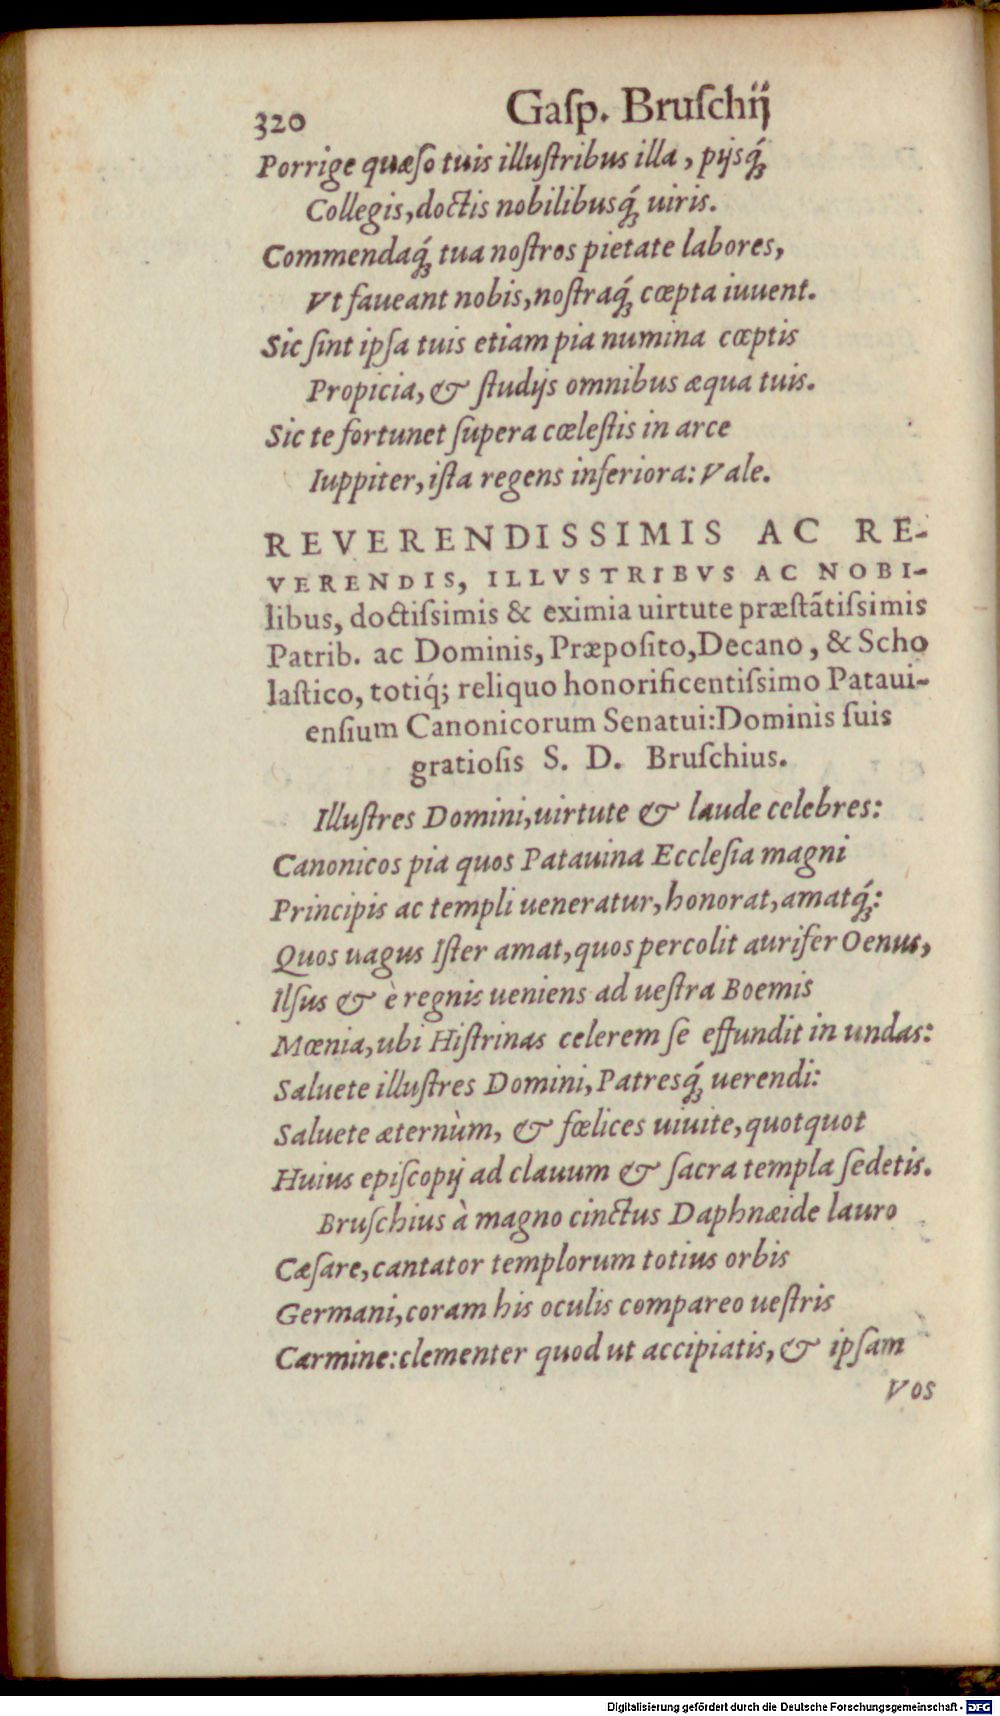 320 Gaſp. Bruſchij
Porrige quæſo tuis illuſtribus illa, pijsq́;
Collegis, doctis nobilibusq́; uiris.
Commendaq́; tua noſtros pietate labores,
Vt faueant nobis, noſtraq́; cœpta iuuent.
Sic ſint ipſa tuis etiam pia numina cœptis
Propicia, & ſtudijs omnibus æqua tuis.
Sic te fortunet ſupera cœleſtis in arce
Iuppiter, iſta regens inferiora: Vale.
REVERENDISSIMIS AC RE-
VERENDIS, ILLVSTRIBVS AC NOBI-
libus, doctiſsimis & eximia uirtute præſtãtiſsimis
Patrib. ac Dominis, Præpoſito, Decano, & Scho
laſtico, totiq́; reliquo honorificentiſsimo Pataui-
enſium Canonicorum Senatui: Dominis ſuis
gratioſis S. D. Bruſchius.
Illuſtres Domini, uirtute & laude celebres:
Canonicos pia quos Patauina Eccleſia magni
Principis ac templi ueneratur, honorat, amatq́;:
Quos uagus Iſter amat, quos percolit aurifer Oenus,
Ilſus & è regnis ueniens ad ueſtra Boemis
Mœnia, ubi Hiſtrinas celerem ſe effundit in undas:
Saluete illuſtres Domini, Patresq́; uerendi:
Saluete æternùm, & fœlices uiuite, quotquot
Huius epiſcopij ad clauum & ſacra templa ſedetis.
Bruſchius à magno cinctus Daphnæide lauro
Cæſare, cantator templorum totius orbis
Germani, coram his oculis compareo ueſtris
Carmine: clementer quod ut accipiatis, & ipſam
Vos
Digitalisierung gefördert durch die Deutsche Forschungsgemeinschaft - DFG